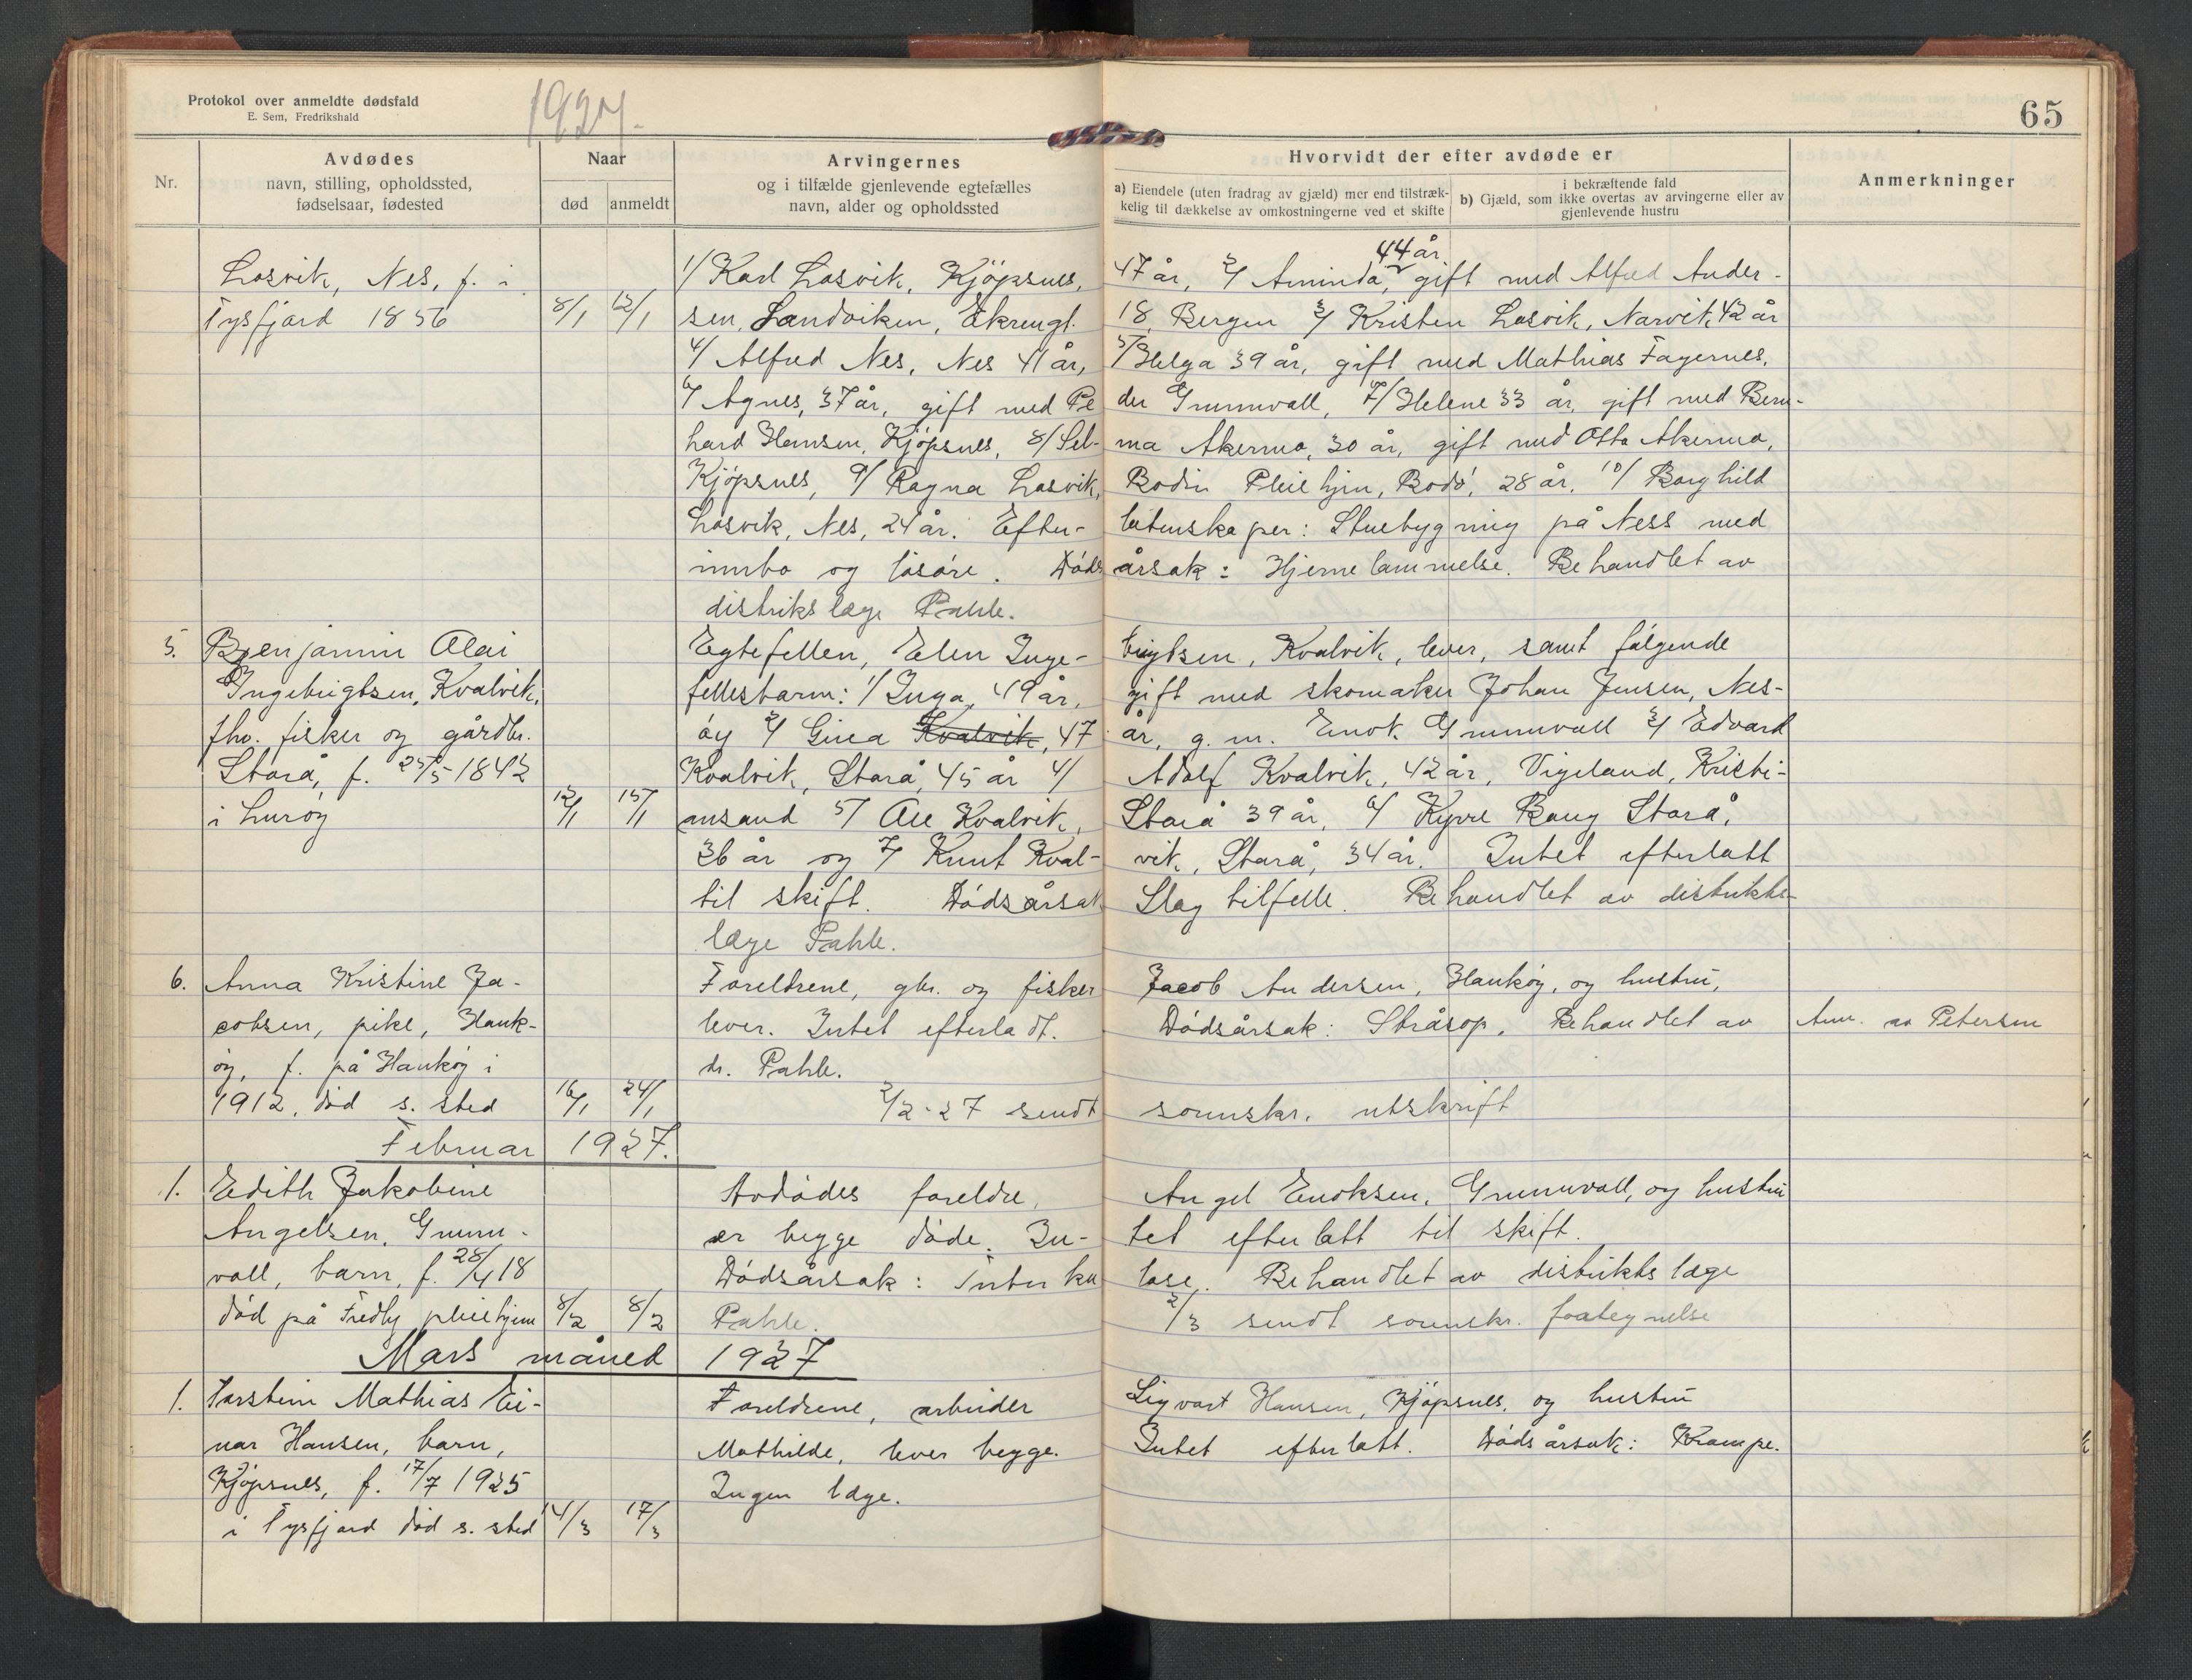 Protokol over anmeldte dødsfald
E. Sem, Fredrikshald
1927.
65
Nr.
Avdødes
navn, stilling, opholdssted,
fødselsaar, fødested
Naar
død
anmeldt
Arvingernes
og i tilfælde gjenlevende egtefælles
navn, alder og opholdssted
Hvorvidt der efter avdøde er
a) Eiendele (uten fradrag av gjæld) mer end tilstræk-
kelig til dækkelse av omkostningerne ved et skifte
i bekræftende fald
b) Gjæld, som ikke overtas av arvingerne eller av
gjenlevende hustru
Anmerkninger
Losvik, Nes, f. i
Tysfjord 1856 8/1 12/1
1/ Karl Losvik, Kjöpsnes, 47 år, 2/ Aminda, 44 år gift med Alfred Ander-
sen, Sandviken, Ekrengt. 18, Bergen 3/ Kristen Losvik, Narvik 42 år
4/ Alfred Nes, Nes 41 år, 5/ Helga 39 år, gift med Mathias Fagernes,
6/ Agnes, 37 år, gift med Pe der Grunnvall, 7/ Helene 33 år, gift med Bern-
hard Hansen, Kjöpsnes, 8/ Sel- ma Akermo, 30 år, gift med Otto Akermo,
Kjöpsnes, 9/ Ragna Losvik, Bodin Pleiehjem, Bodö, 28 år, 10/ Borghild
Losvik, Nes, 24 år. Efter- latenskaper: Stuebygning på Ness med
innbo og lösöre. Döds årsak: Hjernelammelse. Behandlet av
distrikslæge Pahle.
5. Benjamin Olai
Ingebrigtsen, Kvalvik,
fhv. fisker og gårdbr.
Storå, f. 25/5-1842
i Luröy 12/1 15/1
Egtefellen, Elen Inge- brigtsen, Kvalvik, lever, samt fölgende
fellesbarn: 1/ Inga, 49 år, gift med skomaker Johan Jensen, Nes-
öy 2/ Gina Kvalvik, 47 år, g. m. Enok Grunnvall 3/ Edvard
Kvalvik, Storå, 45 år 4/ Adolf Kvalvik, 42 år, Vigeland, Kristi-
ansand 5/ Ole Kvalvik, Storå 39 år, 6/ Kyvre Bang Storå,
36 år og 7/ Knut Kval- vik, Storå, 34 år. Intet efterlatt
til skift. Dödsårsak Slagtilfelle. Behandlet av distrikts-
læge Pahle.
6. Anna Kristine Ja-
cobsen, pike, Hauk-
öy, f. på Hauköy i
1912, död s. sted 16/1 24/1
Foreldrene, gbr. og fisker Jacob Andersen, Hauköy, og hustru,
lever. Intet efterladt. Dödsårsak: Stråsop. Behandlet av Anm. av Petersen
dr. Pahle.
2/2-27 sendt sorenskr. utskrift
Februar 1927.
1. Edith Jakobine
Angelsen, Grunn-
vall, barn, f. 28/4 18
död på Fredly pleiehjem 8/2 8/2
Avdödes foreldre, Angel Enoksen, Grunnvall, og hustru
er begge döde. In- tet efterlatt til skift.
Dödsårsak: Tuberku lose. Behandlet av distriktslæge
Pahle. 2/3 sendt sorenskr. fortegnelse
Mars måned 1927
1. Torstein Mathias Ei-
nar Hansen, barn,
Kjöpsnes, f. 17/7 1925
i Tysfjord död s. sted 14/3 17/3
Foreldrene, arbeider Sigvart Hansen, Kjöpsnes, og hustru
Mathilde, lever begge. Intet efterlatt. Dödsårsak: Krampe.
Ingen læge.